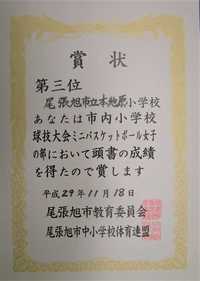 賞状
第三位
尾張旭市立本地原小学校
あなたは市内小学校
球技大会ミニバスケットボール女子
の部において頭書の成績
を得たので賞します
平成29年11月18日
尾張旭市教育委員会
尾張旭市中小学校体育連盟